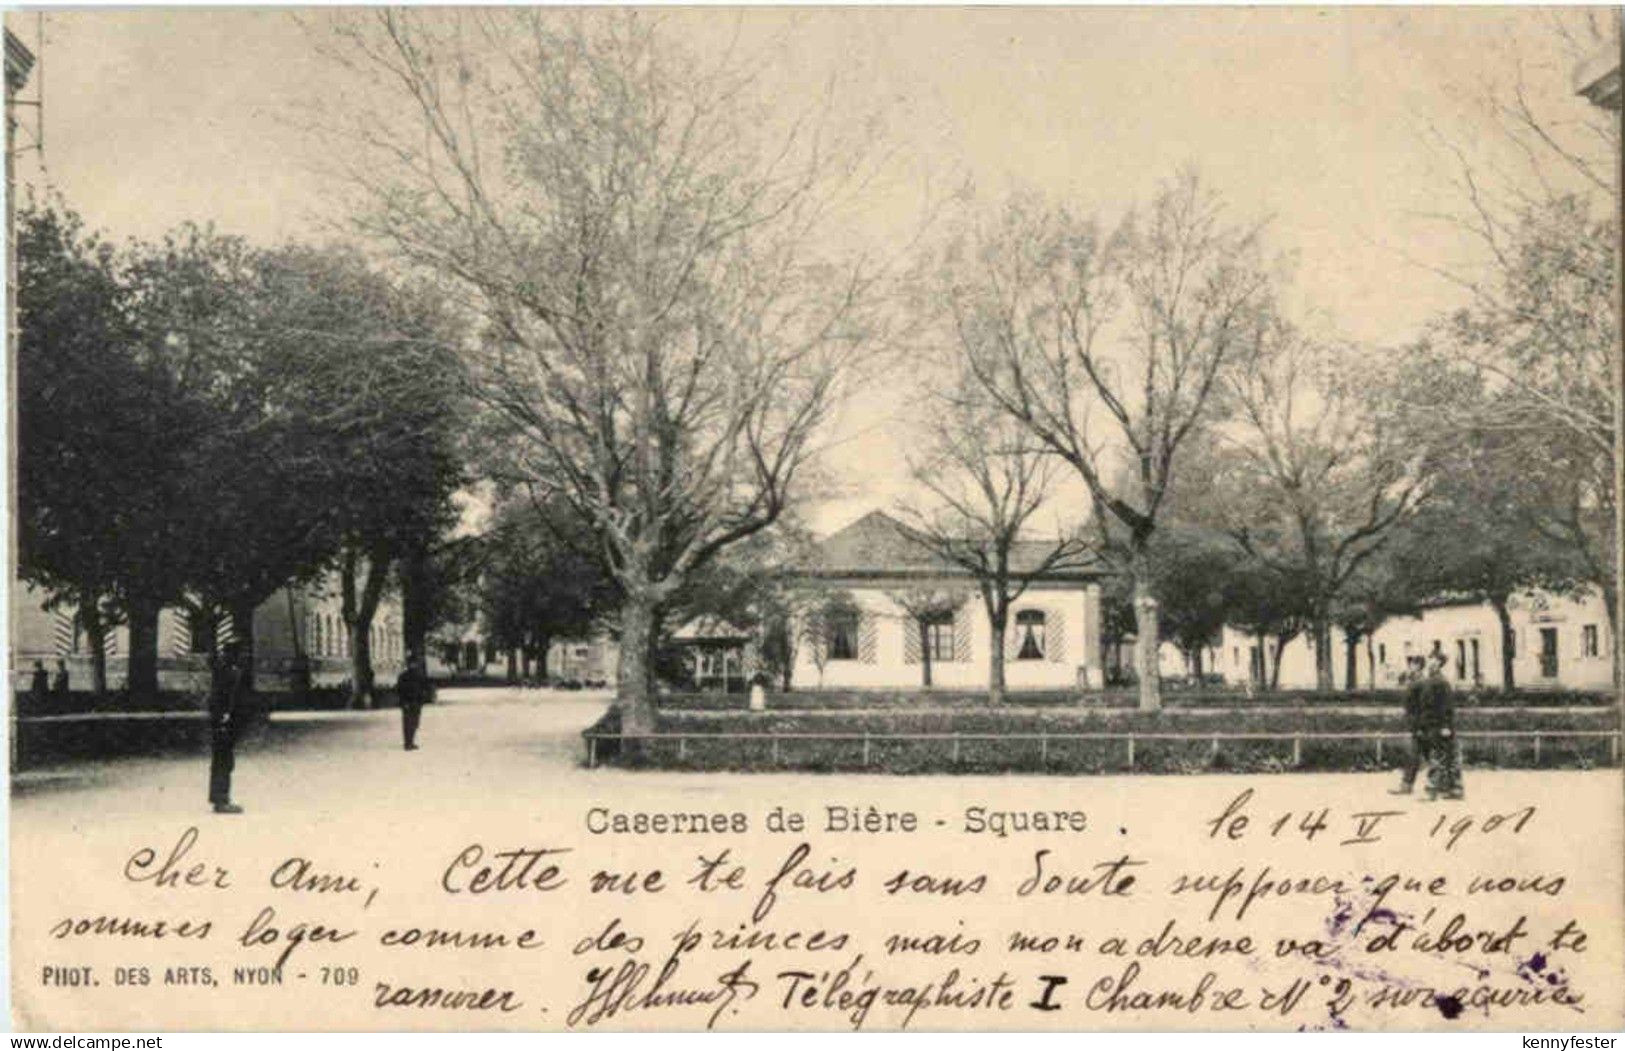 Casernes de Bière - Square.
le 14 V 1901
Cher Ami, Cette vue te fais sans doute supposer que nous
sommes loger comme des princes, mais mon adresse va d'abord te
PHOT. DES ARTS, NYON - 709
rassurer. Télégraphiste I Chambre N° 2 sur écurie
delcampe.net
kennyfester